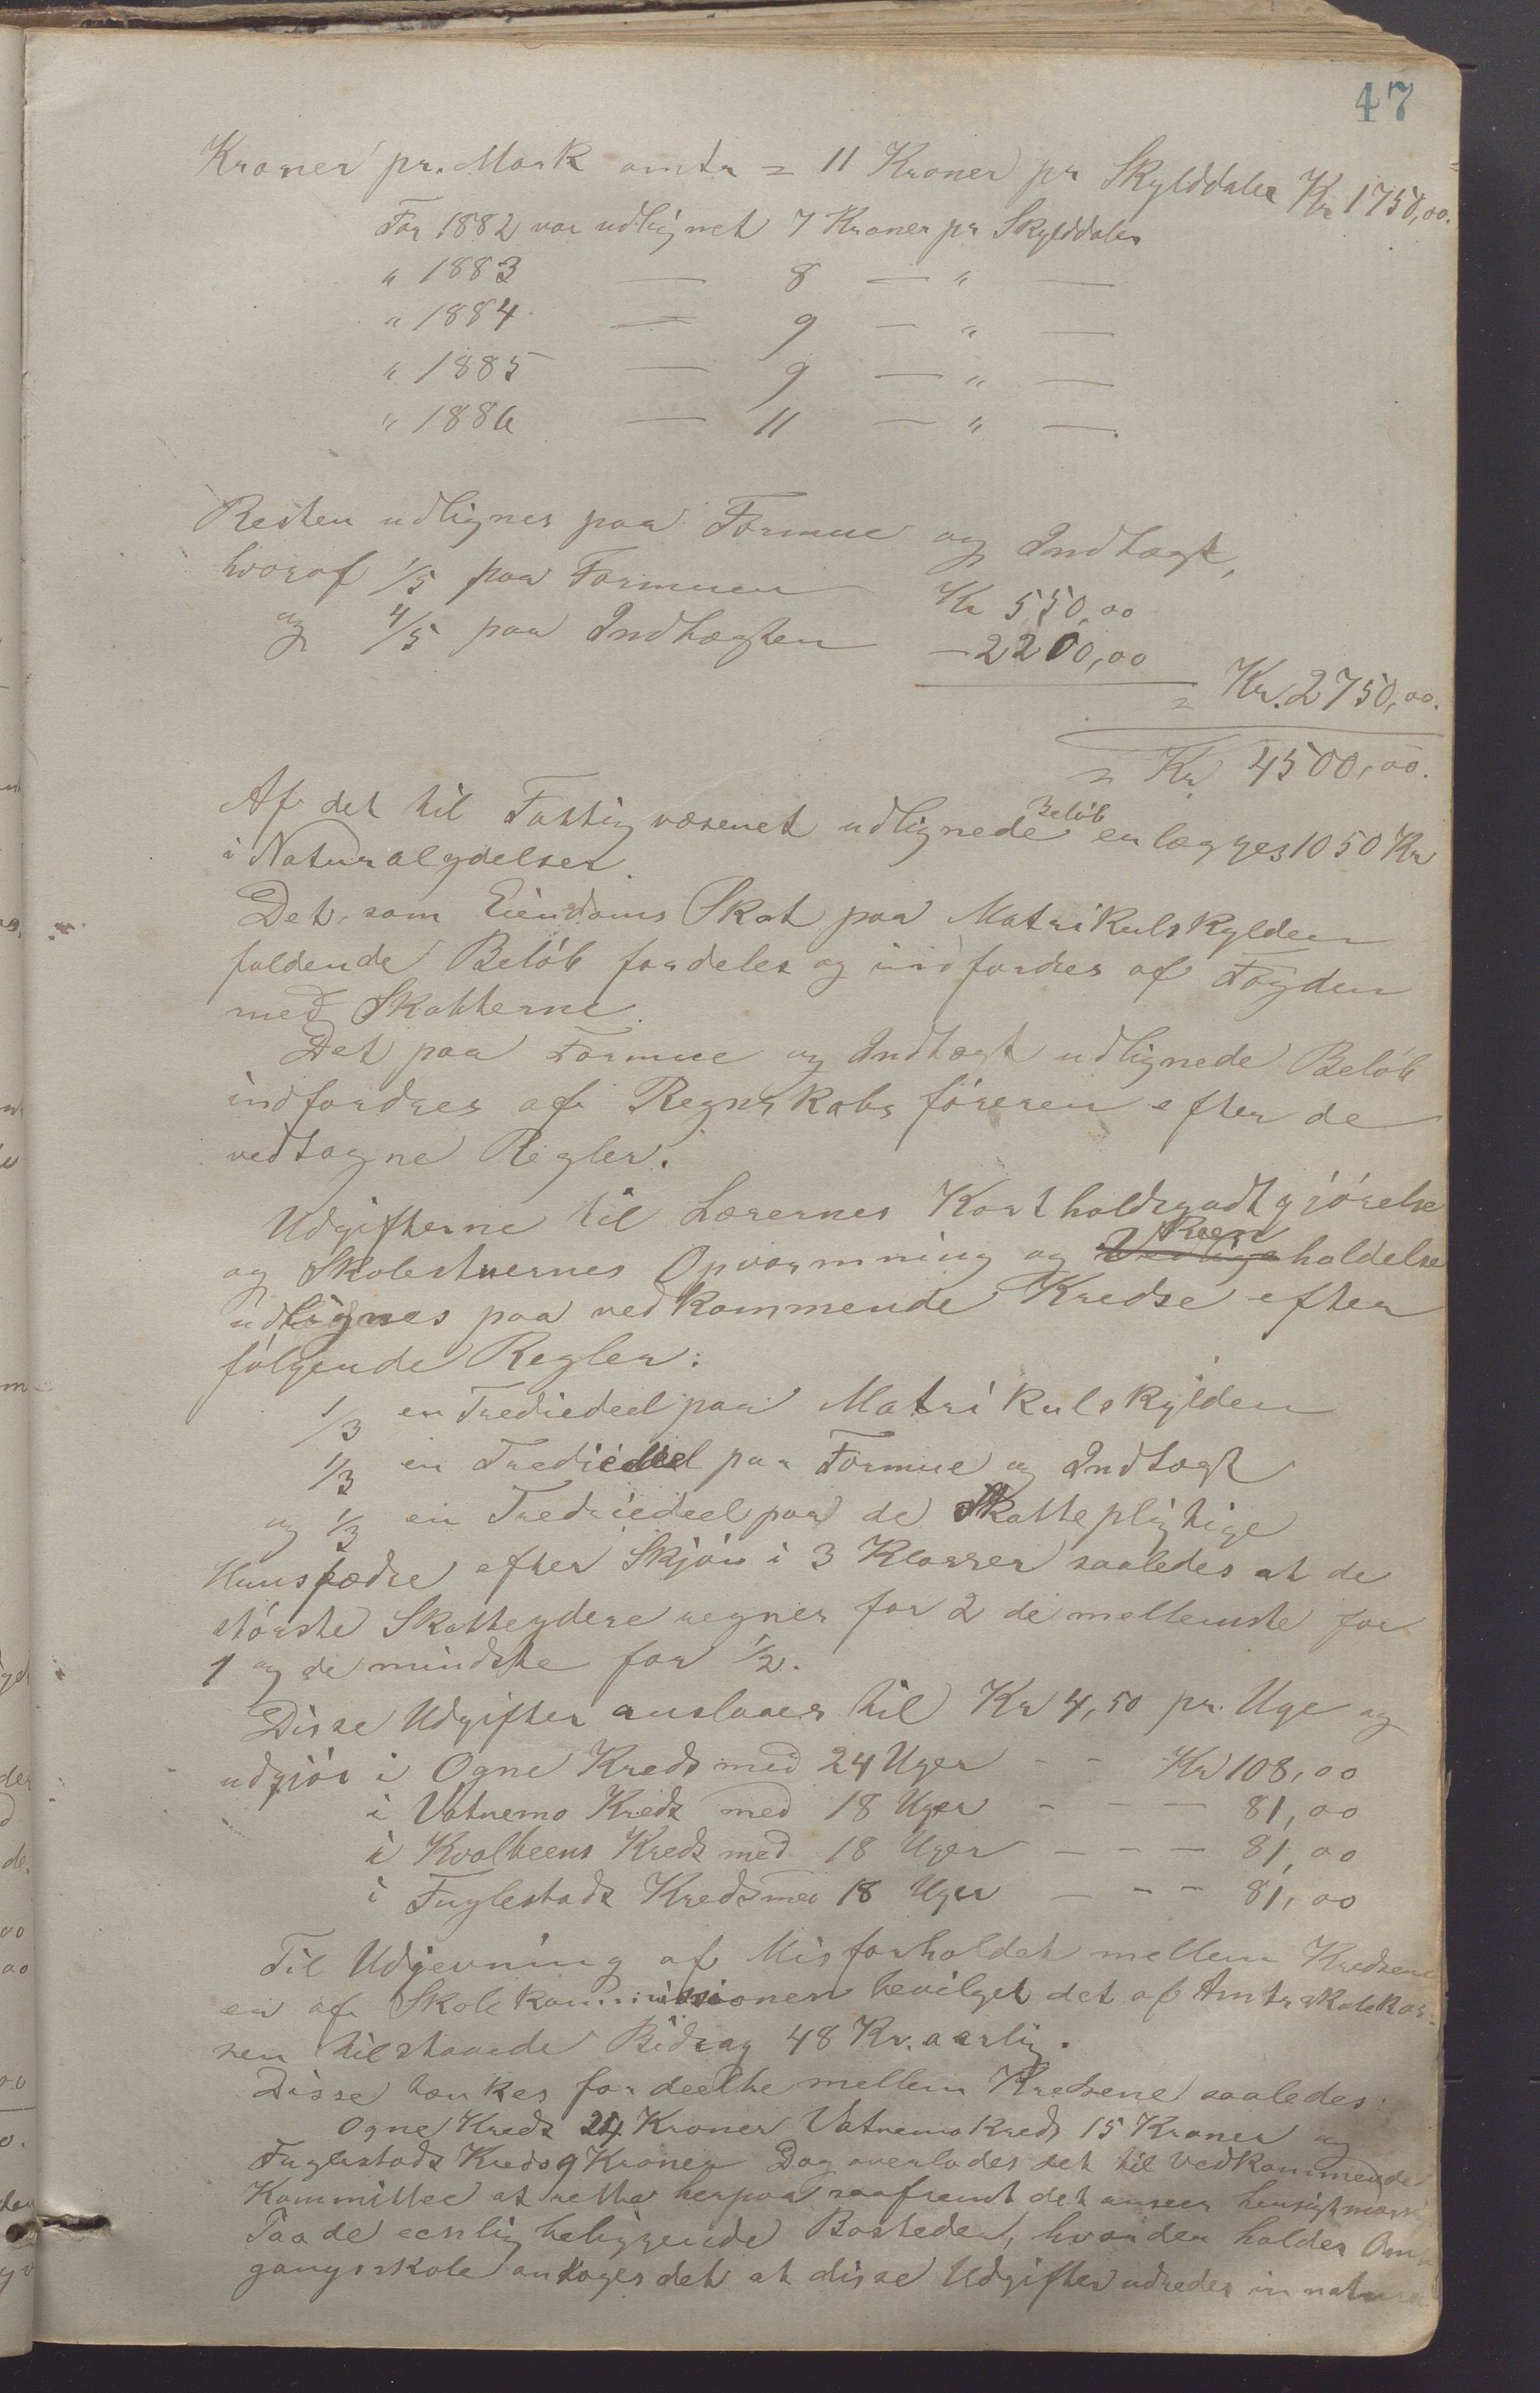 47
Kroner pr. Mark omtr = 11 Kroner pr Skylddaler Kr 1750,00.
For 1882 var udlignet 7 Kroner pr Skylddaler
" 1883 — 8 — " —
" 1884 — 9 — " —
" 1885 — 9 — " —
" 1886 — 11 — " —
Resten udlignes paa Formue og Indtægt,
hvoraf 1/5 paa Formuen Kr 550,00
og 4/5 paa Indtægten — 2200,00
= Kr. 2750,00.
= Kr. 4500,00.
Af det til Fattigvæsenet udlignede Beløb erlægges 1050 Kr
i Naturalydelser.
Det som Eiendoms Skat paa Matrikulskylden
faldende Beløb fordeles og indfordres af Fogden
med Skatterne.
Det paa Formue og Indtægt udlignede Beløb
indfordres af Regnskabsføreren efter de
vedtagne Regler.
Udgifterne til Lærernes Kostholdsgodtgjørelse
og Skolestuernes Opvarmning og Reenholdelse
udlignes paa vedkommende Kredse efter
følgende Regler:
1/3 en Trediedeel paa Matrikulskylden
1/3 en Trediedeel paa Formue og Indtægt
og 1/3 en Trediedeel paa de Skattepligtige
Huusfædre efter Skjøn i 3 Klasser saaledes at de
største Skatteydere regnes for 2 de mellemste for
1 og de mindste for 1/2.
Disse Udgifter anslaaes til Kr 4,50 pr. Uge og
udgjør i Ogne Kreds med 24 Uger - - Kr 108,00
i Vatnemo Kreds med 18 Uger - - - 81,00
i Kvalbeens Kreds med 18 Uger - - - 81,00
i Fuglestads Kreds med 18 Uger - - - 81,00
Til Udjevning af Misforholdet mellem Kredsene
er af Skolekommissionen bevilget det af Amtsskolekas-
sen tilstaaede Bidrag 48 Kr. aarlig.
Disse tænkes fordeelte mellem Kredsene saaledes:
Ogne Kreds 24 Kroner Vatnemo Kreds 15 Kroner og
Fuglestads Kreds 9 Kroner Dog overlades det til Vedkommende
Kommittee at rette herpaa saafremt det ansees hensigtsmæssig
Paa de eenslig beliggende Bosteder, hvor der holdes Om-
gangsskole antages det at disse Udgifter udredes in natura